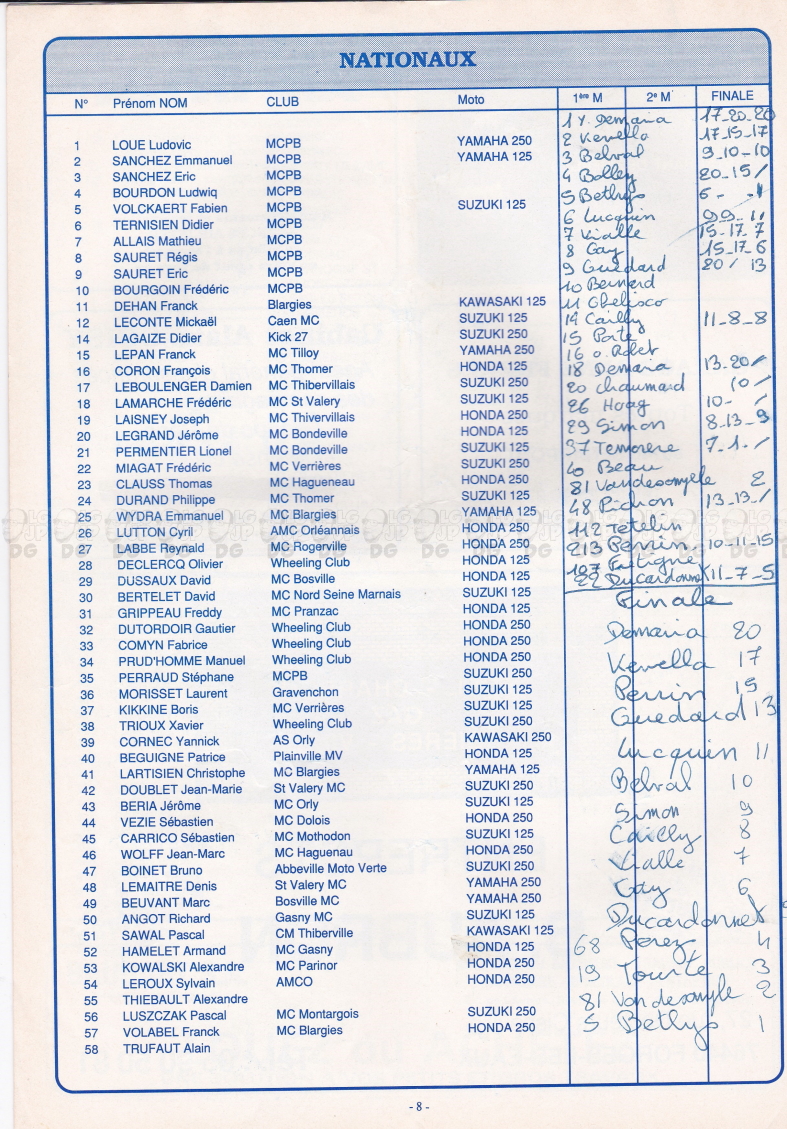 NATIONAUX
N° Prénom NOM CLUB Moto 1ère M 2e M FINALE
1 LOUE Ludovic MCPB YAMAHA 250
2 SANCHEZ Emmanuel MCPB YAMAHA 125
3 SANCHEZ Eric MCPB
4 BOURDON Ludwiq MCPB
5 VOLCKAERT Fabien MCPB SUZUKI 125
6 TERNISIEN Didier MCPB
7 ALLAIS Mathieu MCPB
8 SAURET Régis MCPB
9 SAURET Eric MCPB
10 BOURGOIN Frédéric MCPB
11 DEHAN Franck Blargies KAWASAKI 125
12 LECONTE Mickaël Caen MC SUZUKI 125
14 LAGAIZE Didier Kick 27 SUZUKI 250
15 LEPAN Franck MC Tilloy YAMAHA 250
16 CORON François MC Thomer HONDA 125
17 LEBOULENGER Damien MC Thibervillais SUZUKI 250
18 LAMARCHE Frédéric MC St Valery SUZUKI 250
19 LAISNEY Joseph MC Thivervillais HONDA 250
20 LEGRAND Jérôme MC Bondeville HONDA 125
21 PERMENTIER Lionel MC Bondeville SUZUKI 125
22 MIAGAT Frédéric MC Verrières SUZUKI 250
23 CLAUSS Thomas MC Hagueneau HONDA 250
24 DURAND Philippe MC Thomer SUZUKI 125
25 WYDRA Emmanuel MC Blargies YAMAHA 125
26 LUTTON Cyril AMC Orléannais HONDA 250
27 LABBE Reynald MC Rogerville HONDA 250
28 DECLERCQ Olivier Wheeling Club HONDA 250
29 DUSSAUX David MC Bosville HONDA 125
30 BERTELET David MC Nord Seine Marnais SUZUKI 125
31 GRIPPEAU Freddy MC Pranzac HONDA 250
32 DUTORDOIR Gautier Wheeling Club HONDA 250
33 COMYN Fabrice Wheeling Club HONDA 250
34 PRUD'HOMME Manuel Wheeling Club HONDA 250
35 PERRAUD Stéphane MCPB SUZUKI 250
36 MORISSET Laurent Gravenchon SUZUKI 125
37 KIKKINE Boris MC Verrières SUZUKI 125
38 TRIOUX Xavier Wheeling Club SUZUKI 250
39 CORNEC Yannick AS Orly KAWASAKI 250
40 BEGUIGNE Patrice Plainville MV HONDA 125
41 LARTISIEN Christophe MC Blargies YAMAHA 125
42 DOUBLET Jean-Marie St Valery MC SUZUKI 250
43 BERIA Jérôme MC Orly SUZUKI 125
44 VEZIE Sébastien MC Dolois HONDA 250
45 CARRICO Sébastien MC Mothodon SUZUKI 125
46 WOLFF Jean-Marc MC Haguenau HONDA 250
47 BOINET Bruno Abbeville Moto Verte SUZUKI 250
48 LEMAITRE Denis St Valery MC YAMAHA 250
49 BEUVANT Marc Bosville MC YAMAHA 250
50 ANGOT Richard Gasny MC SUZUKI 125
51 SAWAL Pascal CM Thiberville KAWASAKI 125
52 HAMELET Armand MC Gasny HONDA 125
53 KOWALSKI Alexandre MC Parinor HONDA 250
54 LEROUX Sylvain AMCO HONDA 250
55 THIEBAULT Alexandre
56 LUSZCZAK Pascal MC Montargois SUZUKI 250
57 VOLABEL Franck MC Blargies HONDA 250
58 TRUFAUT Alain
1 Y. Demaria 17-20-20
2 Kervella 17-15-17
3 Belval 9-10-10
4 Bolley 20-15/
5 Bethys 6 - -1
6 Lucquin 9 9-11
7 Vialle 15-17-7
8 Gay 15-17-6
9 Guedard 20/ 13
10 Bernard
11 Obelisco
14 Cailly 11-8-8
15 Porte
16 o. Robet
18 Demaria 13-20/
20 Chaumard 10/
26 Hoag 10- /
29 Simon 8-13-9
37 Temorere 7-1-/
40 Beau
81 Vandesompele 2
48 Pichon 13-13-/
112 Tetelin
213 Perrin 10-11-15
107 Fretigne
22 Ducardonnet 11-7-5
Finale
Demaria 20
Kervella 17
Perrin 15
Guedard 13
Lucquin 11
Belval 10
Simon 9
Cailly 8
Vialle 7
Gay 6
Ducardonnet
68 Perez 4
19 Tourte 3
81 Vandesompele 2
5 Bethys 1
- 8 -